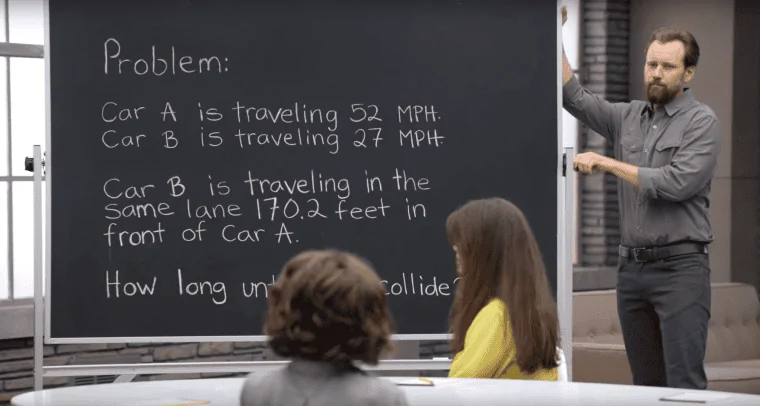 Problem:
Car A is traveling 52 MPH.
Car B is traveling 27 MPH.
Car B is traveling in the
same lane 170.2 feet in
front of Car A.
How long collide?